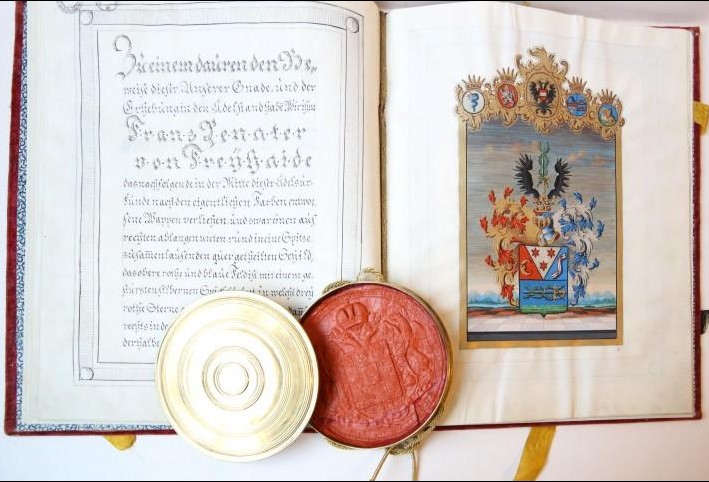 Zu einem dauren den Be„
weise dieser Unserer Gnade, und der
Erhebung in den Adelstand habe Wir ihm
Franz Zenater
von Freÿhaide
das nachfolgende in der Mitte dieser Adelsur-
kunde nach den eigentlichen Farben entwor
fene Wappen verliehen, und zwar einen auf
rechten ablangen unten rund in eine Spitze
zusam̄enlaufenden quer getheilten Schild,
das obere rothe und blaue Feld ist mit einem ge
stürzten silbernen in welche dreÿ
rothe Sterne
rechts in